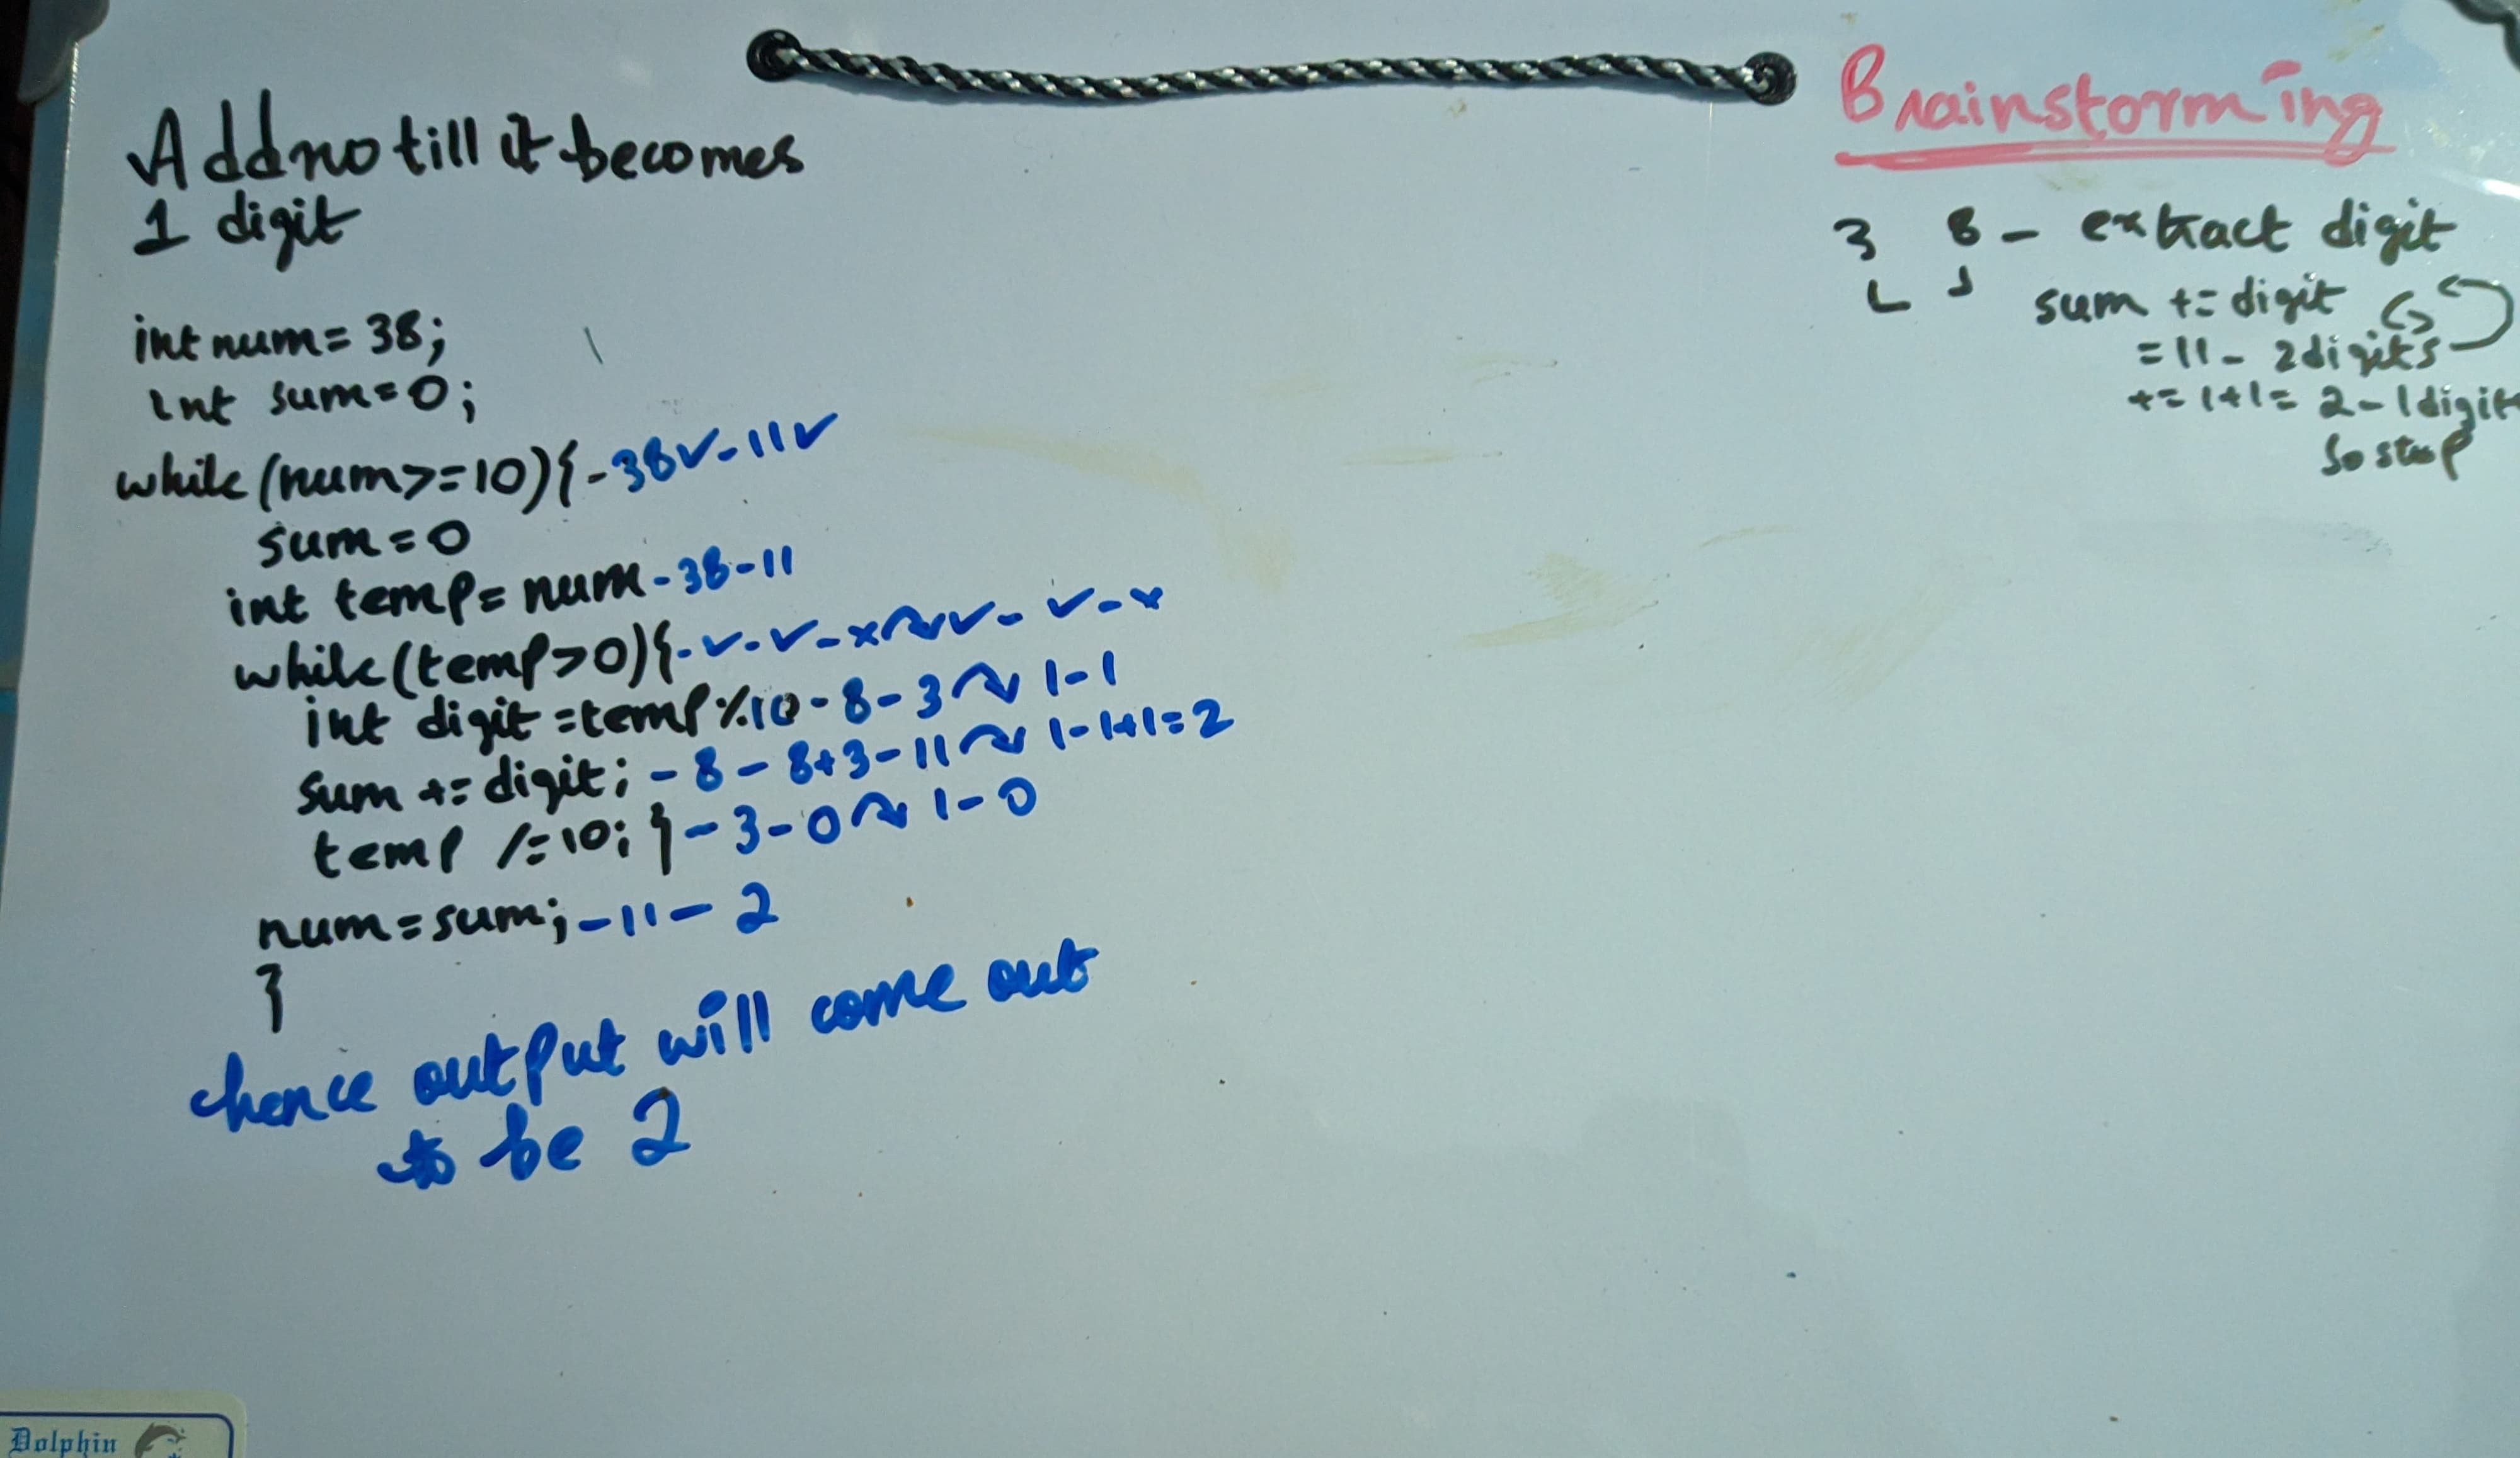 Add no till it becomes
1 digit
int num = 38;
int sum = 0;
while (num >= 10) { - 38 ✓ - 11 ✓
sum = 0
int temp = num - 38 - 11
while (temp > 0) { - ✓ - ✓ - x ~ ✓ - ✓ - x
int digit = temp % 10 - 8 - 3 ~ 1 - 1
sum += digit; - 8 - 8+3 - 11 ~ 1 - 1+1 = 2
temp /= 10; } - 3 - 0 ~ 1 - 0
num = sum; - 11 - 2
}
hence output will come out
to be 2
Brainstorming
3 8 - extract digit
sum += digit
= 11 - 2 digits
+= 1+1 = 2 - 1 digit
So stop
Dolphin